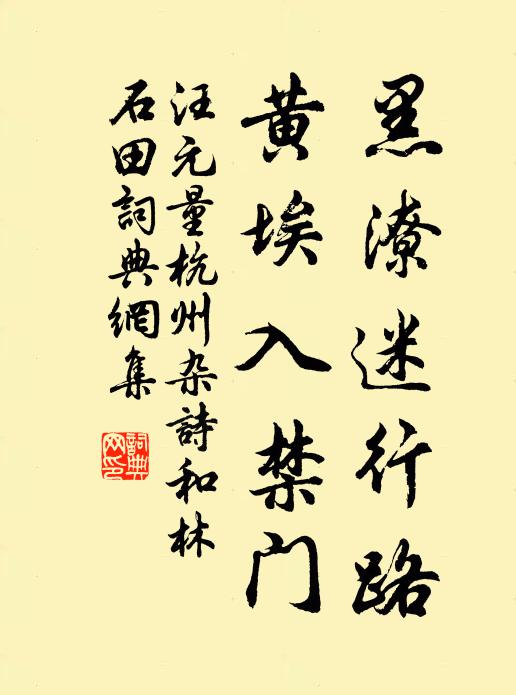 黑潦迷行路
黄埃入禁门
汪元量杭州杂詩和林
石田詞典網集
詞典网印